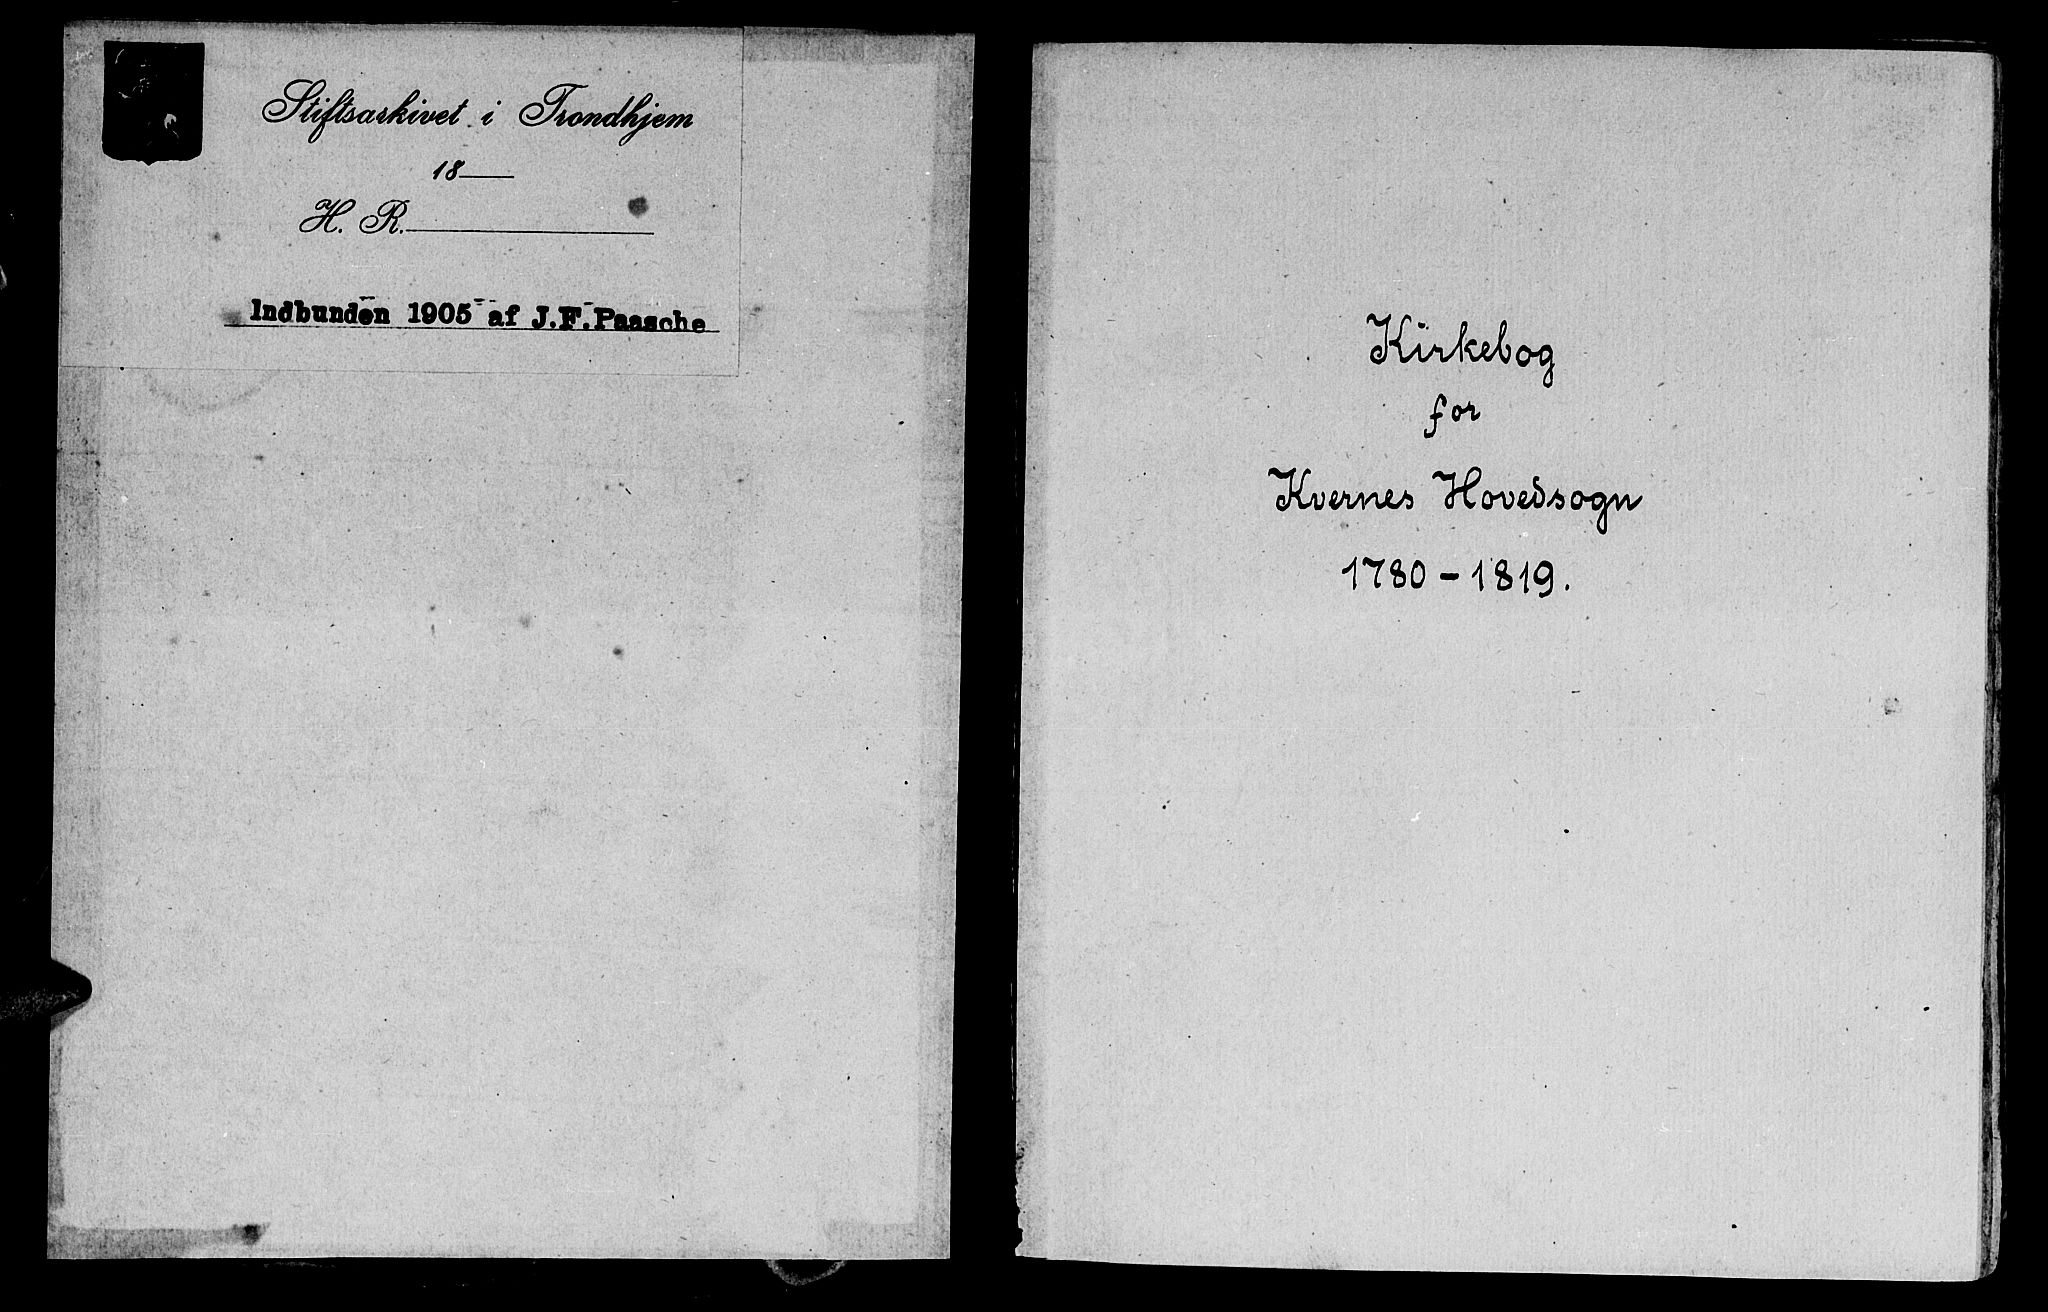 Stiftsarkivet i Trondhjem
18
H. R.
Indbunden 1905 af J.F.Paasche
Kirkebog
for
Kvernes Hovedsogn
1780 - 1819.